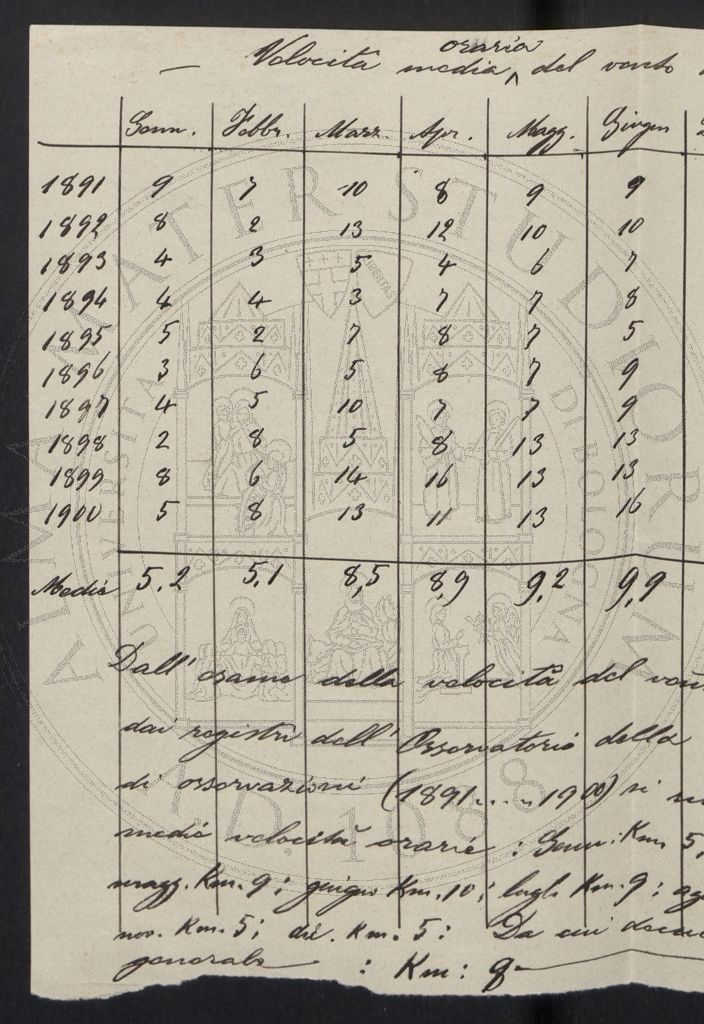 — Velocità media oraria del vento
Genn. Febbr. Marz. Apr. Magg. Giugn
1891 9 7 10 8 9 9
1892 8 2 13 12 10 10
1893 4 3 5 4 6 7
1894 4 4 3 7 7 8
1895 5 2 7 8 7 5
1896 3 6 5 8 7 9
1897 4 5 10 7 7 9
1898 2 8 5 8 13 13
1899 8 6 14 16 13 13
1900 5 8 13 11 13 16
Medie 5.2 5,1 8,5 8,9 9,2 9,9
Dall' esame della velocità del
dai registri dell' Osservatorio della
di osservazioni (1891.....1900) si
medie velocità orarie : Genn. Km 5,
magg. Km. 9 ; giugno Km. 10 ; lugl. Km. 9 ;
nov. Km. 5 ; dic. Km. 5 : Da cui
generale : Km : 8
ALMA MATER STUDIORUM
UNIVERSITÀ DI BOLOGNA
A.D. 1088